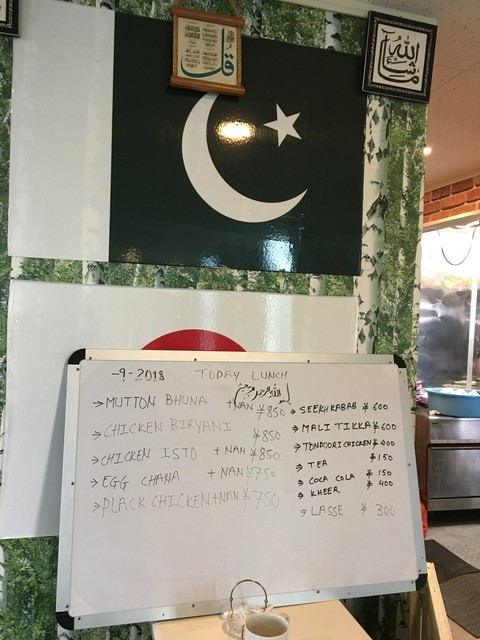 ما شاء الله
-9-2018 TODAY LUNCH
بسم الله الرحمن الرحيم
→MUTTON BHUNA +NAN ¥850
→CHICKEN BIRYANI ¥850
→CHICKEN ISTO +NAN ¥850
→EGG CHANA +NAN ¥750
→PLACK CHICKEN+NAN ¥750
→SEEKH KABAB ¥600
→MALI TIKKA ¥600
→TONDOORI CHICKEN ¥400
→TEA ¥150
→COCA COLA ¥150
→KHEER ¥400
→LASSE ¥300